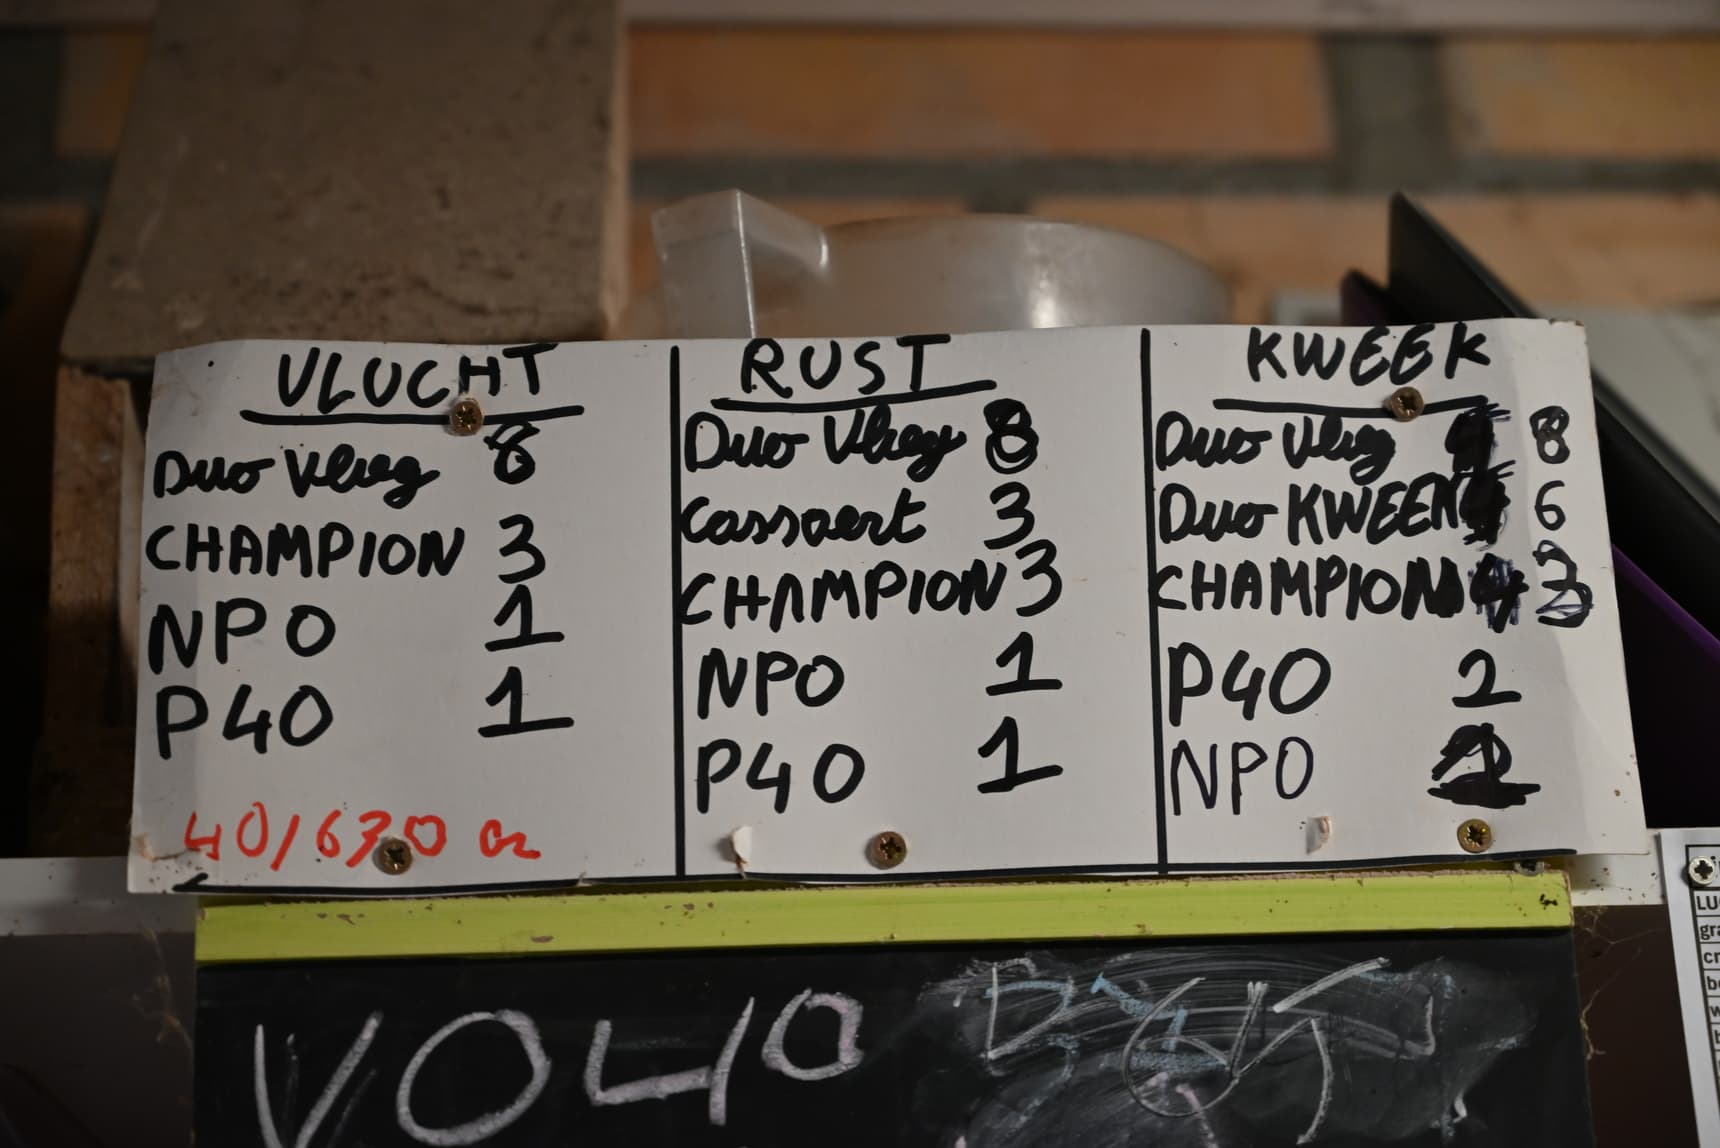 VLUCHT
Duo Vlieg 8
CHAMPION 3
NPO 1
P40 1
40/630 gr
RUST
Duo Vlieg 8
Cassaert 3
CHAMPION 3
NPO 1
P40 1
KWEEK
Duo Vlieg 8
Duo KWEEK 6
CHAMPION
P40 2
NPO
LU
gra